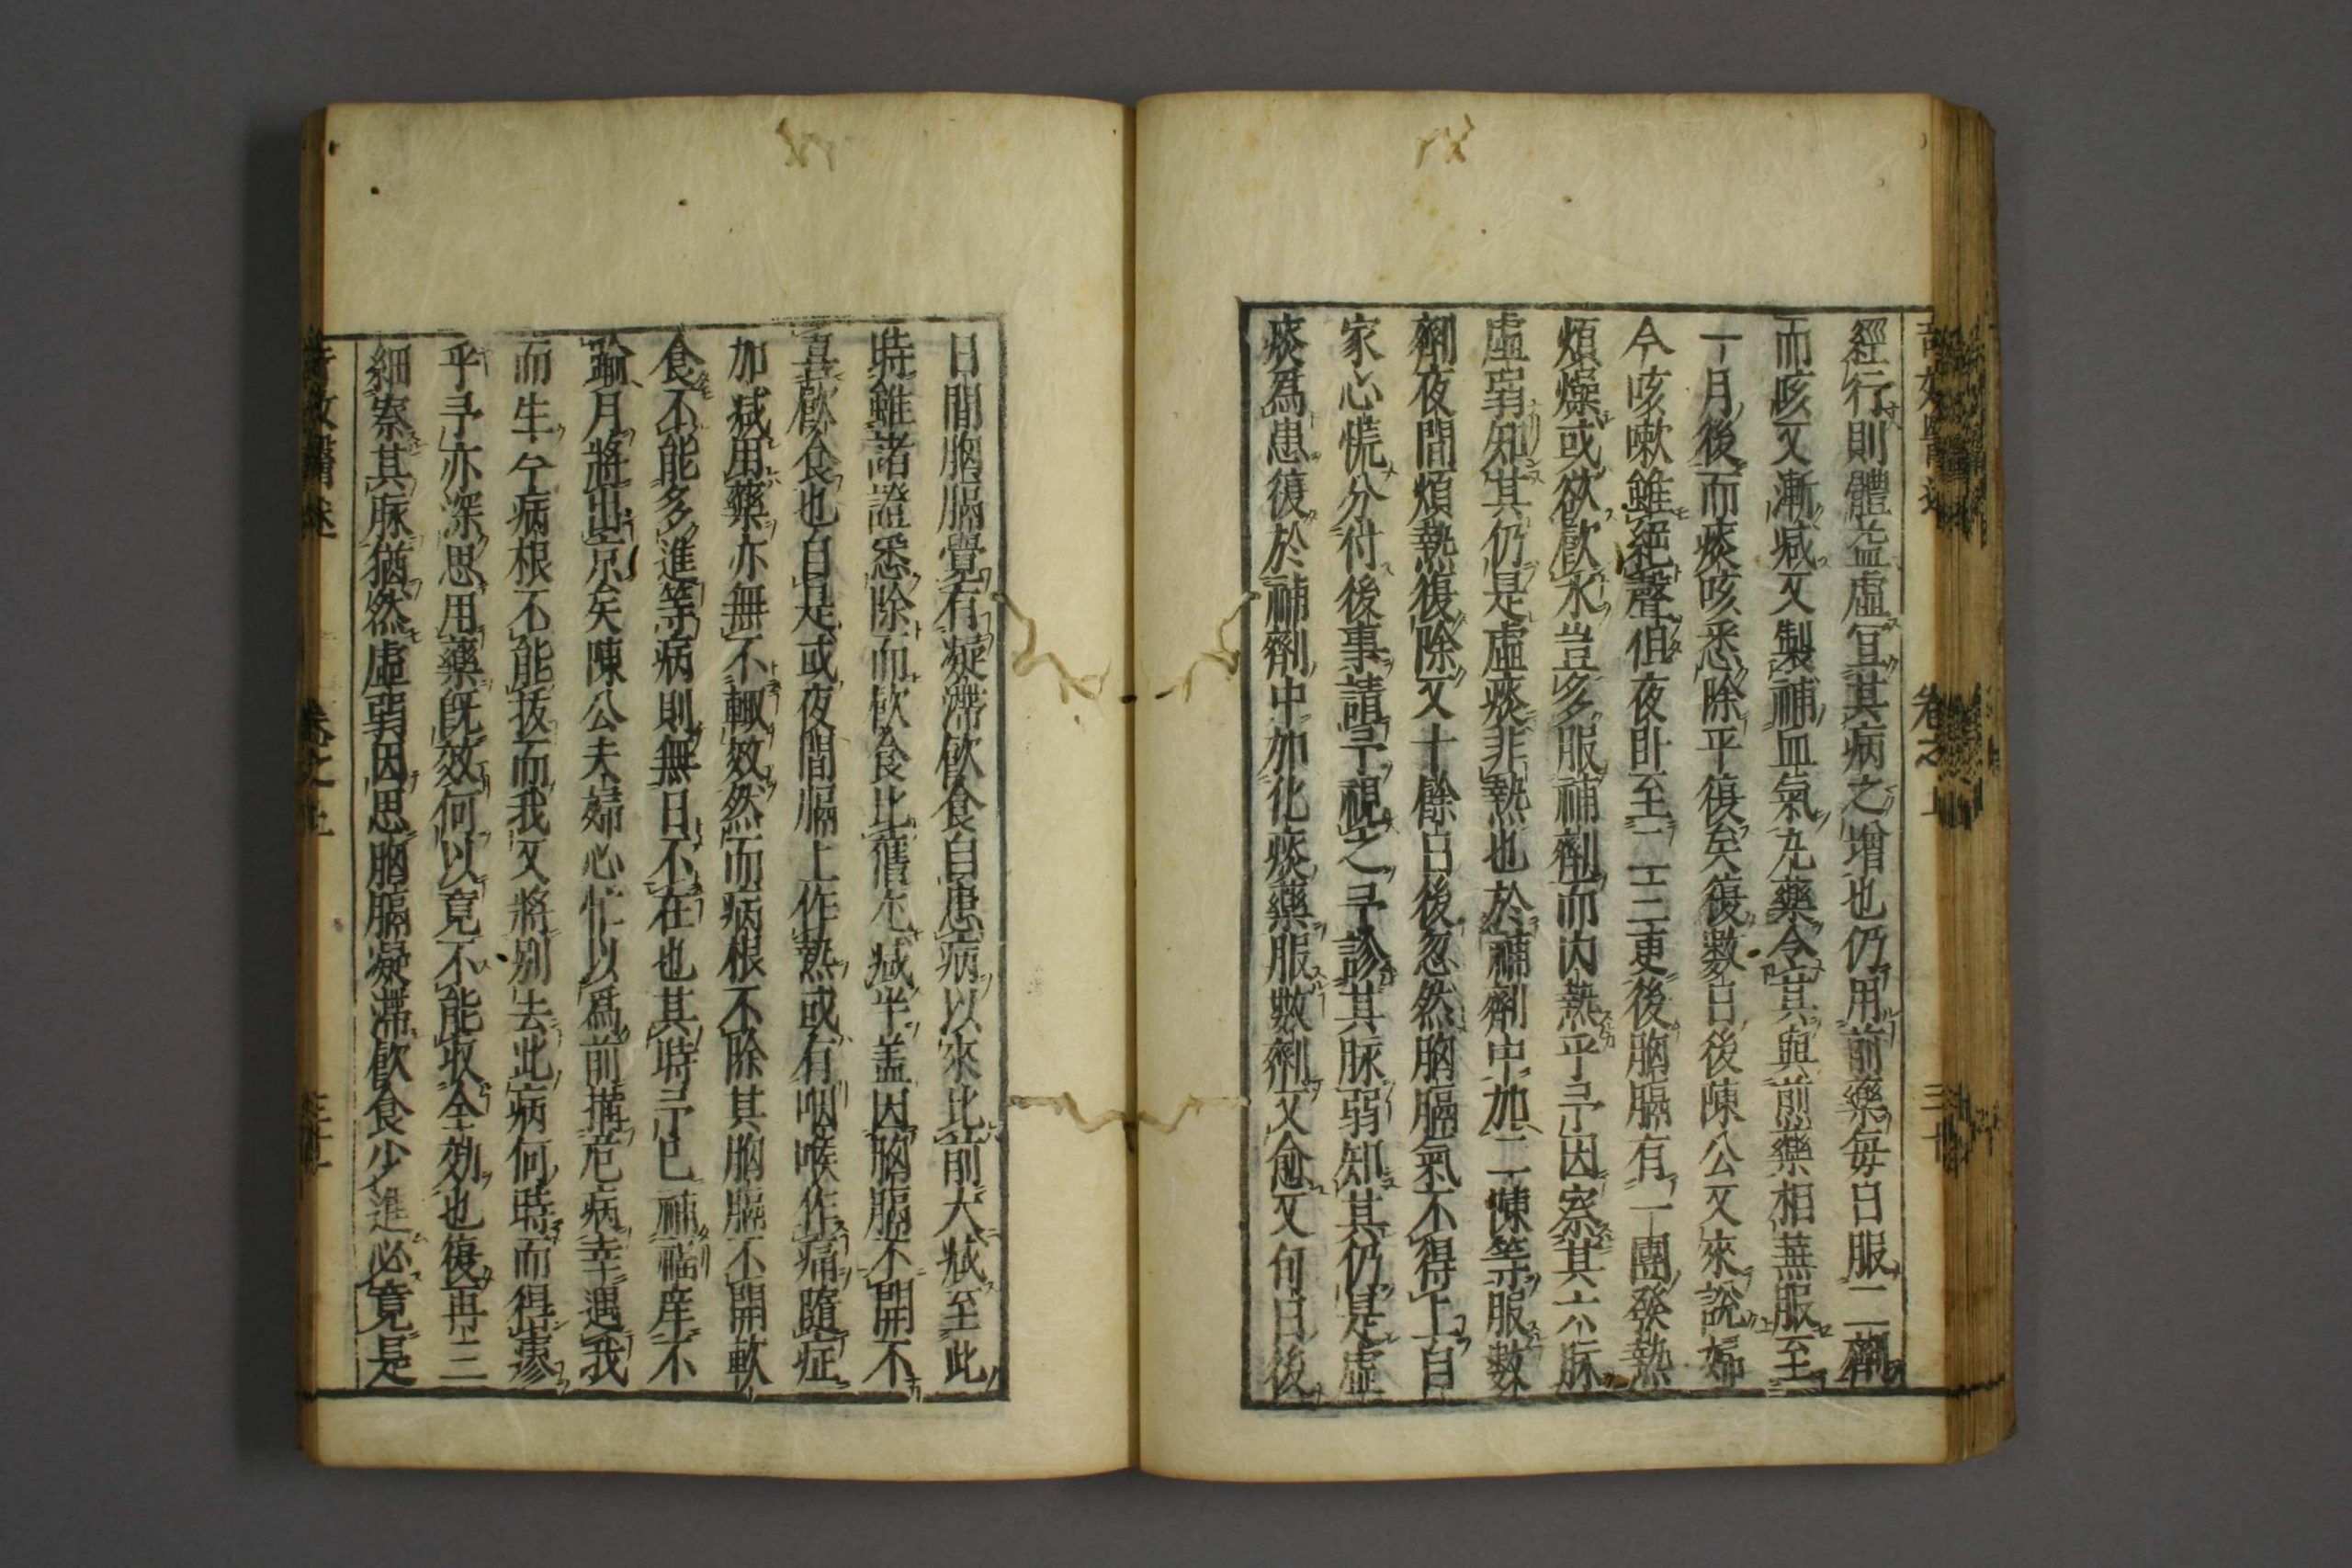 經行則體益虛宜其病之增也仍用前藥每日服二劑
而咳又漸減又製補血氣丸藥令其與煎藥相兼服至
一月後而痰咳悉除平復矣復數日後陳公又來說婦
今咳嗽雖絕聲但夜臥至一二三更後胸膈有一團發熱
煩燥或欲飮水豈多服補劑而內熱乎予因察其六脉
虛弱知其仍是虛痰非熱也於補劑中加二陳等服數
劑夜間煩熱復除又十餘日後忽然胸膈氣不得上自
家心慌分付後事請予視之予診其脉弱知其仍是虛
痰爲患復於補劑中加化痰藥服數劑又愈又旬日後
日間胸膈覺有凝滯飮食自患病以來比前大減至此
時雖諸證悉除而飮食比舊尤減半盖因胸膈不開不
喜飮食也自是或夜間膈上作熱或有咽喉作痛隨症
加減用藥亦無不輙效然而病根不除其胸膈不開軟
食不能多進等病則無日不在也其時予已補臨庠不
踰月將出京矣陳公夫婦心忙以爲前構危病幸遇我
而生今病根不能拔而我又將別去此病何時而得瘳
乎予亦深思用藥旣效何以竟不能收全効也復再三
細察其脉猶然虛弱因思胸膈凝滯飮食少進必竟是
卷之上